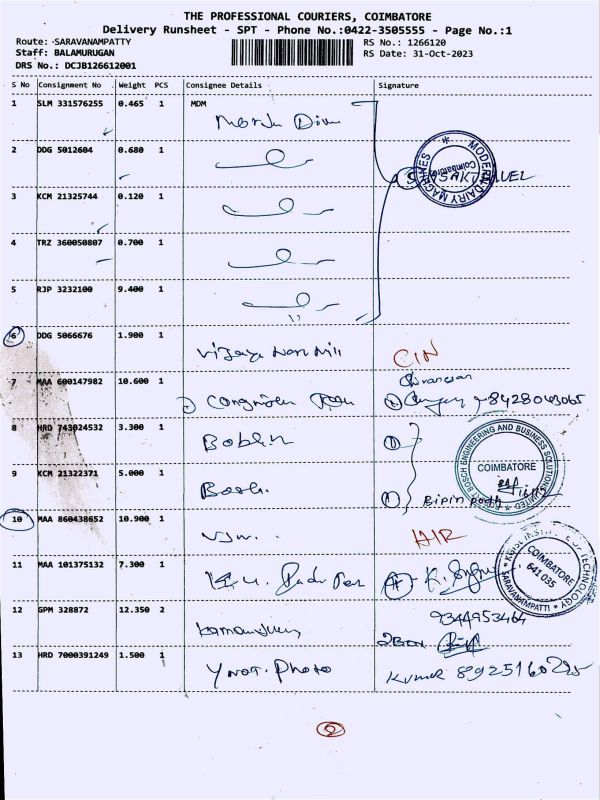 THE PROFESSIONAL COURIERS, COIMBATORE
Delivery Runsheet - SPT - Phone No.:0422-3505555 - Page No.:1
Route: SARAVANAMPATTY
Staff: BALAMURUGAN
DRS No.: DCJB126612001
RS No.: 1266120
RS Date: 31-Oct-2023
S No Consignment No Weight PCS Consignee Details Signature
1 SLM 331576255 0.465 1 MDM
2 DDG 5012604 0.680 1
MODERN DAIRY MACHINES
Coimbatore
SAKTHIVEL
3 KCM 21325744 0.120 1
4 TRZ 360050807 0.700 1
5 RJP 3232100 9.400 1
6 DDG 5066676 1.900 1
7 MAA 600147982 10.600 1
8428043065
8 HRD 743024532 3.300 1
BOSCH ENGINEERING AND BUSINESS SOLUTIONS LIMITED
COIMBATORE
9 KCM 21322371 5.000 1 Bosh.
Bipin
10 MAA 860438652 10.900 1
11 MAA 101375132 7.300 1
INSTITUTE OF TECHNOLOGY
COIMBATORE
641 035
SARAVANAMPATTI
12 GPM 328872 12.350 2
9344953464
13 HRD 7000391249 1.500 1 Ynot. Photo
Kumar 8925160225